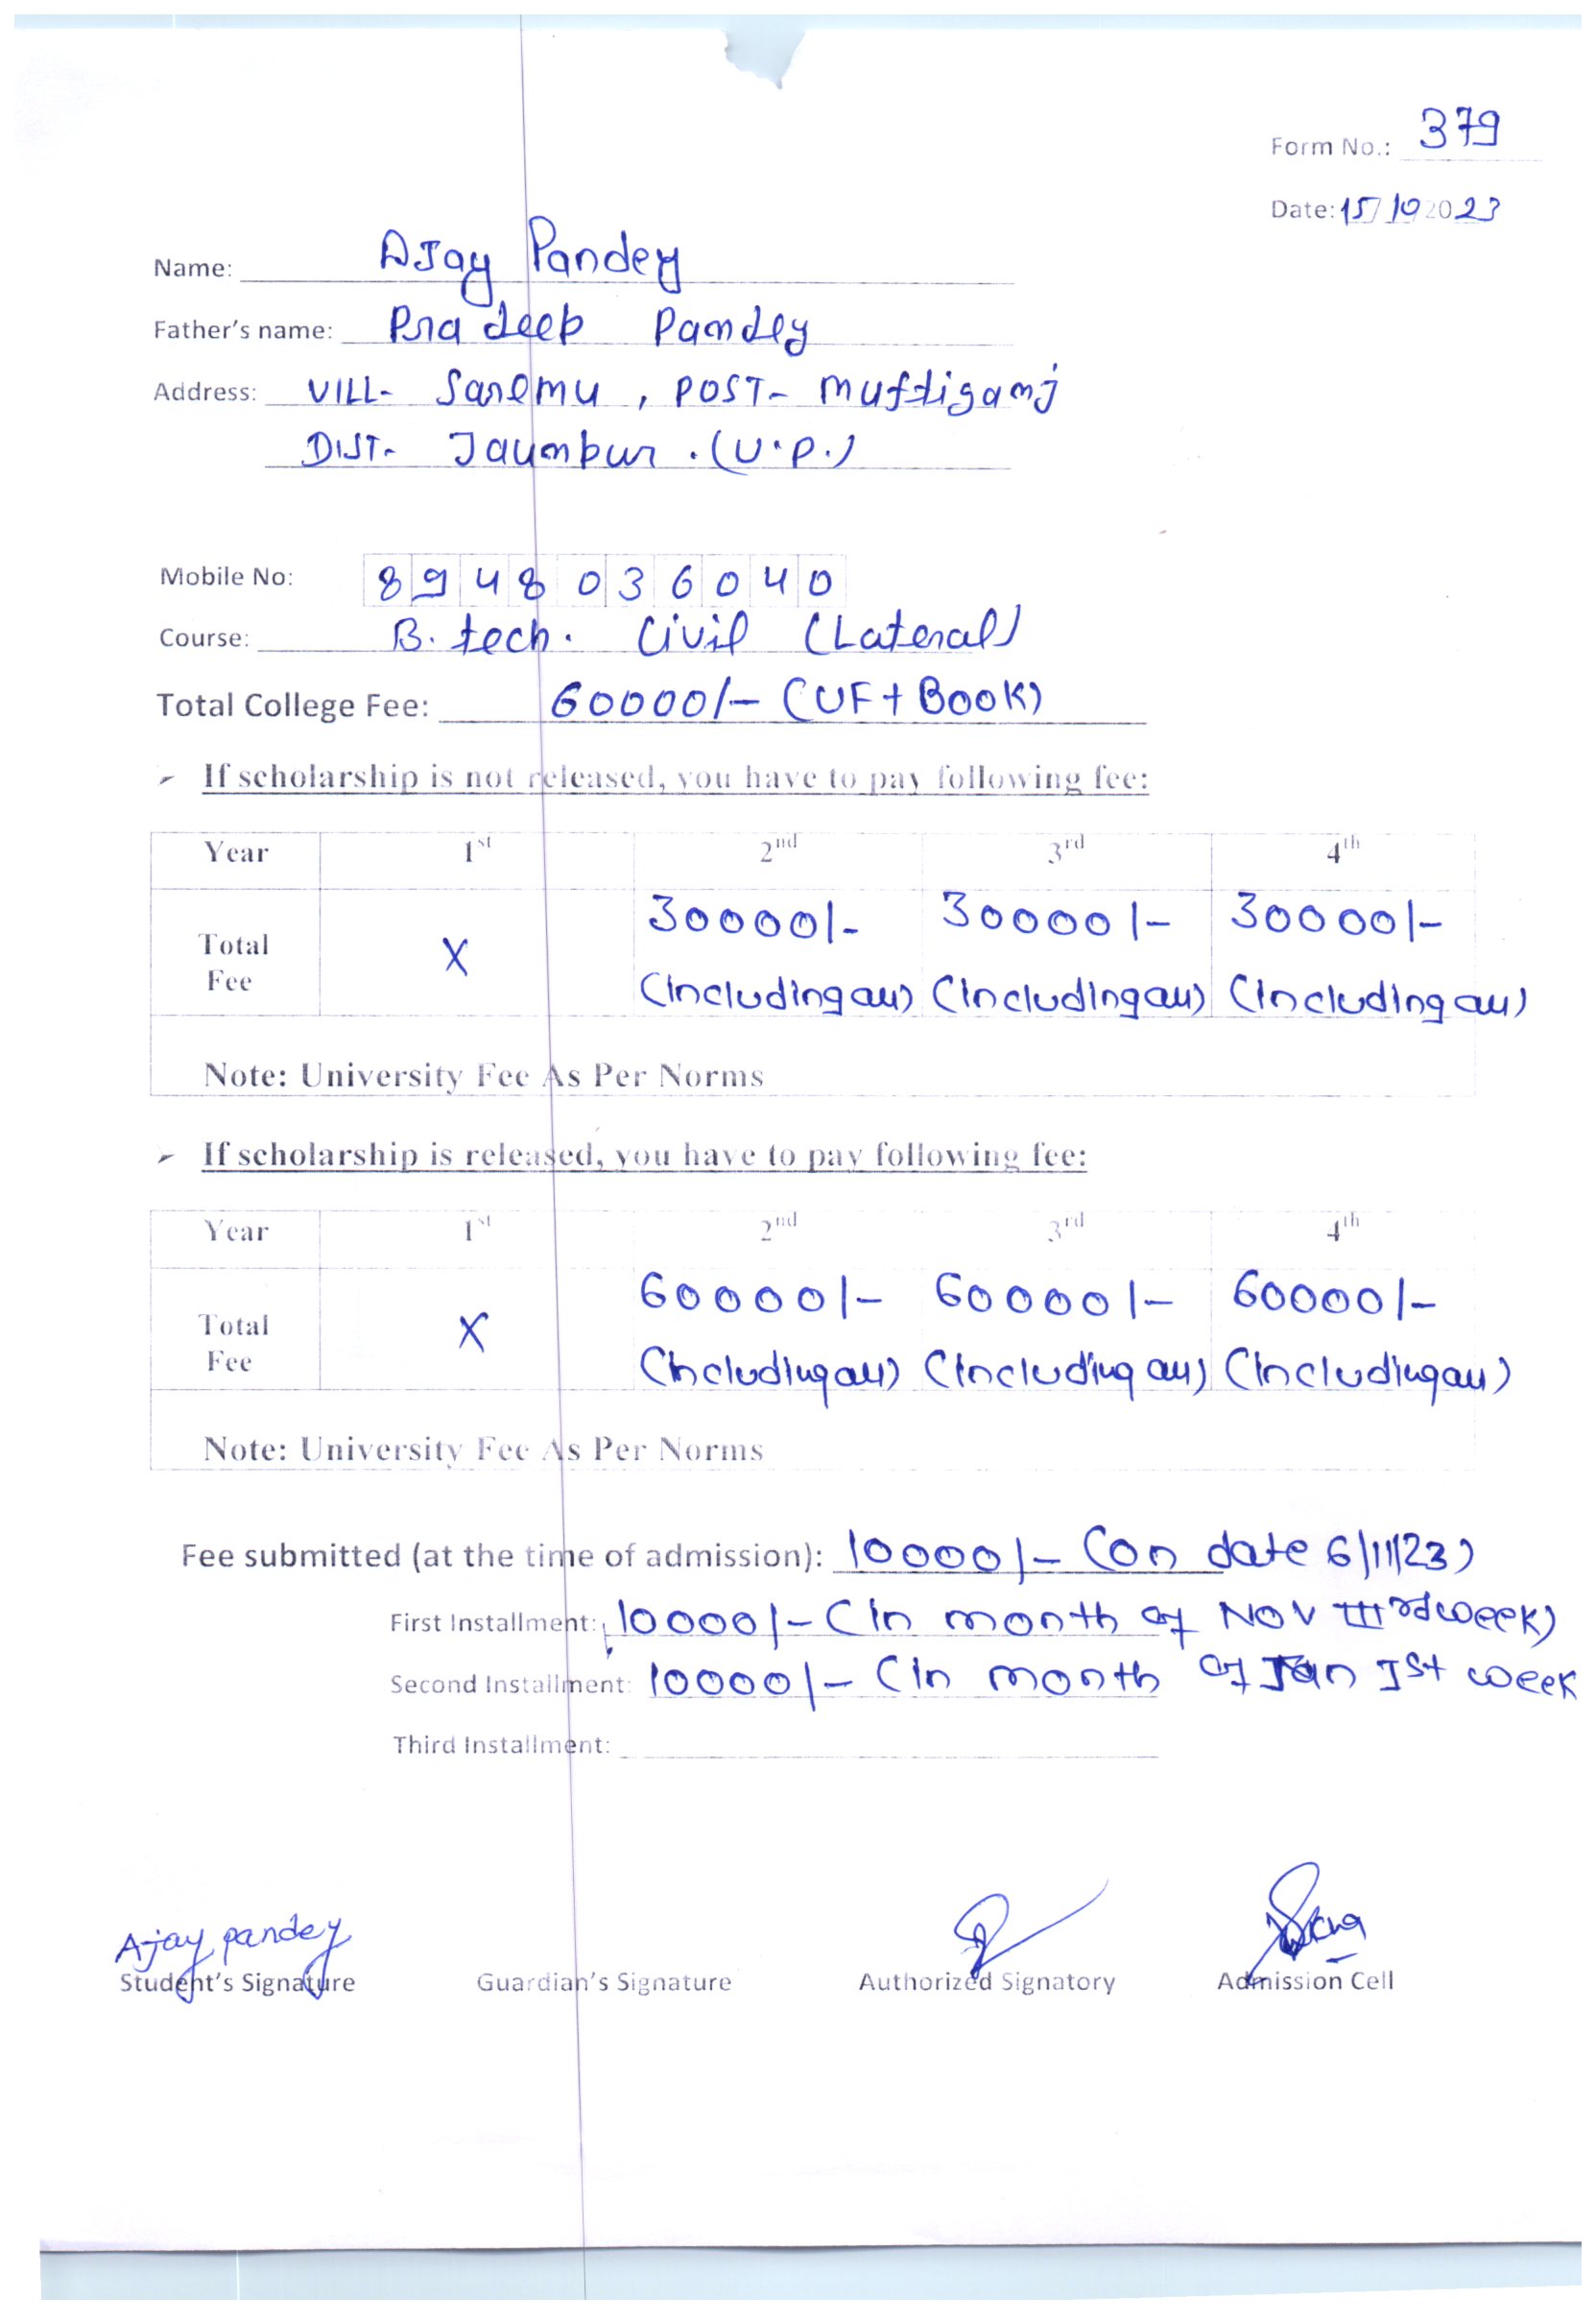 Form No.: 379
Date: 15/10 2023
Name: AJay Pandey
Father's name: Pradeep Pandey
Address: VILL- Saremu , POST- muftiganj
DIST- Jaunpur . (U.P.)
Mobile No: 8948036040
Course: B. tech. Civil (Lateral)
Total College Fee: 60000/- (UF + Book)
➢ If scholarship is not released, you have to pay following fee:
Year 1st 2nd 3rd 4th
30000/- 30000/- 30000/-
Total Fee X
(Including all) (Including all) (Including all)
Note: University Fee As Per Norms
➢ If scholarship is released, you have to pay following fee:
Year 1st 2nd 3rd 4th
60000/- 60000/- 60000/-
Total Fee X
(Including all) (Including all) (Including all)
Note: University Fee As Per Norms
Fee submitted (at the time of admission): 10000/- (on date 6/11/23)
First Installment: 10000/- (In month of NOV IIIrd week)
Second Installment: 10000/- (In month of Jan Ist week
Third Installment:
Ajay pandey
Student's Signature Guardian's Signature Authorized Signatory Admission Cell